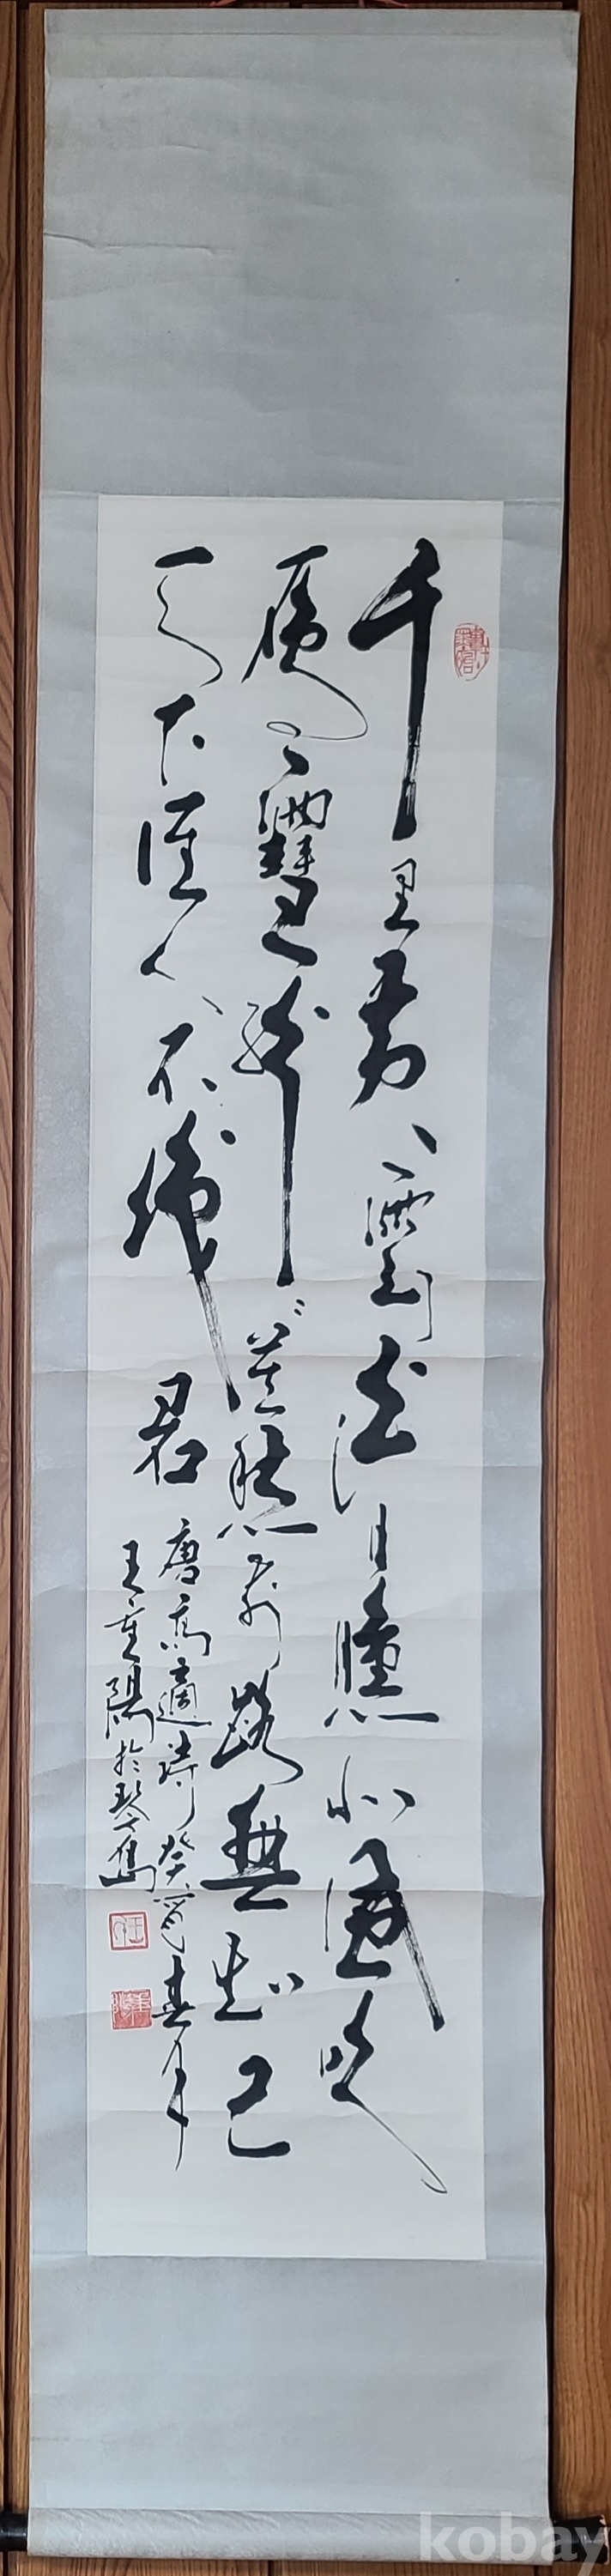 千里黃雲白日曛北風吹
雁雪紛〻莫愁前路無知己
天下誰人不識君
唐高適詩癸酉春
王重陽於琴島
kobay